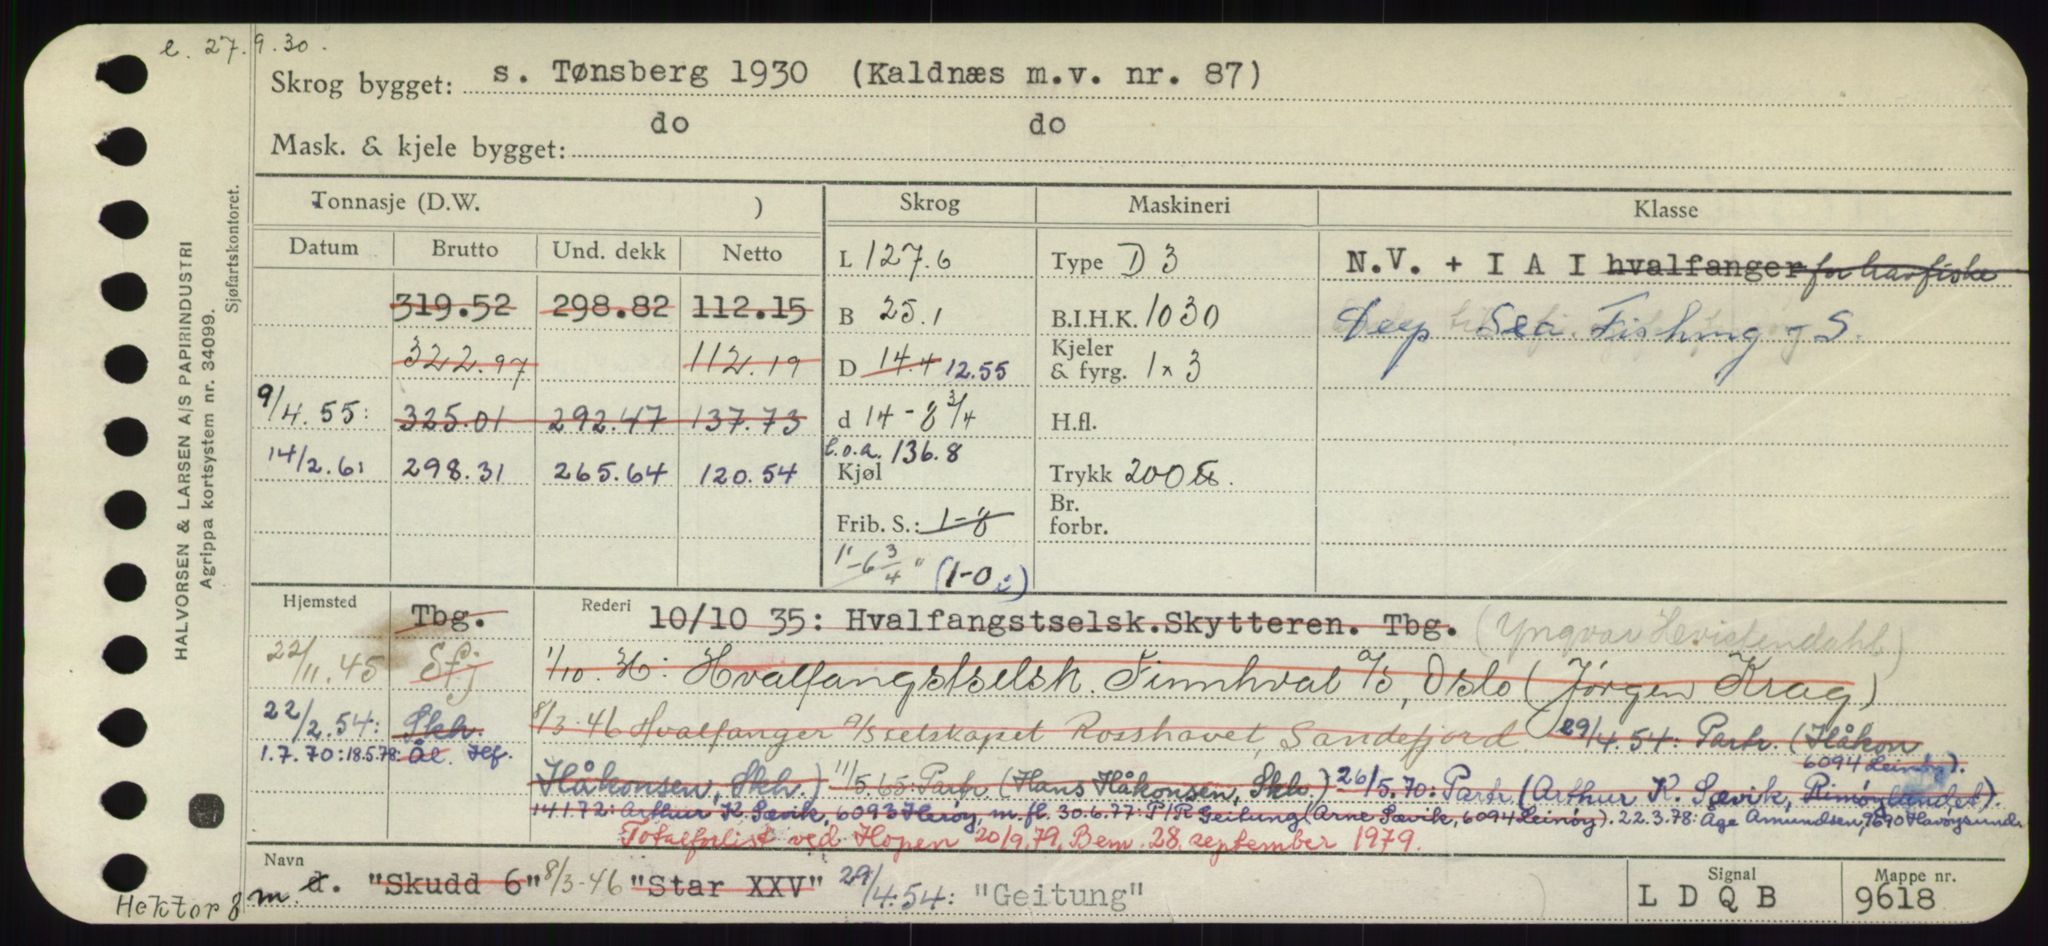 e. 27.9.30.
Skrog bygget: s. Tønsberg 1930 (Kaldnæs m.v. nr. 87)
do do
Mask. & kjele bygget:
HALVORSEN & LARSEN A/S PAPIRINDUSTRI
Agrippa kortsystem nr. 34099.
Sjøfartskontoret.
Tonnasje (D.W. ) Skrog Maskineri Klasse
Datum Brutto Und. dekk Netto
L 127.6 Type D 3 N.V. + I A I hvalfanger for havfiske
319.52 298.82 112.15 B 25.1 B.I.H.K. 1030 Deep Sea Fishing S.
322.97 112.19 D 14.4 12.55 Kjeler & fyrg. 1 x 3
9/4.55: 325.01 292.47 137.73 d 14-8 3/4 H.fl.
14/2.61 298.31 265.64 120.54 L.o.a. 136.8
Kjøl Trykk 200
Frib. S.: 1-8 Br. forbr.
1'-6 3/4" (1-0)
Hjemsted Tbg. Rederi 10/10 35: Hvalfangstselsk.Skytteren. Tbg. (Yngvar Hvistendahl)
22/11.45 Sfj 1/10. 36: Hvalfangstselsk. Finnhval A/S, Oslo (Jørgen Krag)
22/2.54: Skh. 8/3-46 Hvalfanger A/Selskapet Rosshavet, Sandefjord 29/4.54: Partr. (Håkon
1.7.70: 18.5.78: Ål. Hf. Håkonsen, Skh.) 11/5.65: Partr. (Hans Håkonsen, Skh.) 26/5.70: Partr (Arthur K. Sævik, Rimøylandet).
6094 Leinøy).
14.1.72: Arthur K. Sævik, 6093 Herøy, m.fl. 30.6.77: P/R Geitung (Arne Sævik, 6094 Leinøy). 22.3.78: Åge Amundsen, 9690 Havøysund
Totalforlist ved Hopen 20/9.79, Bem. 28. september 1979.
Navn Signal Mappe nr.
Hektor 8 m d. "Skudd 6" 8/3-46 "Star XXV" 29/4.54: "Geitung" L D Q B 9618